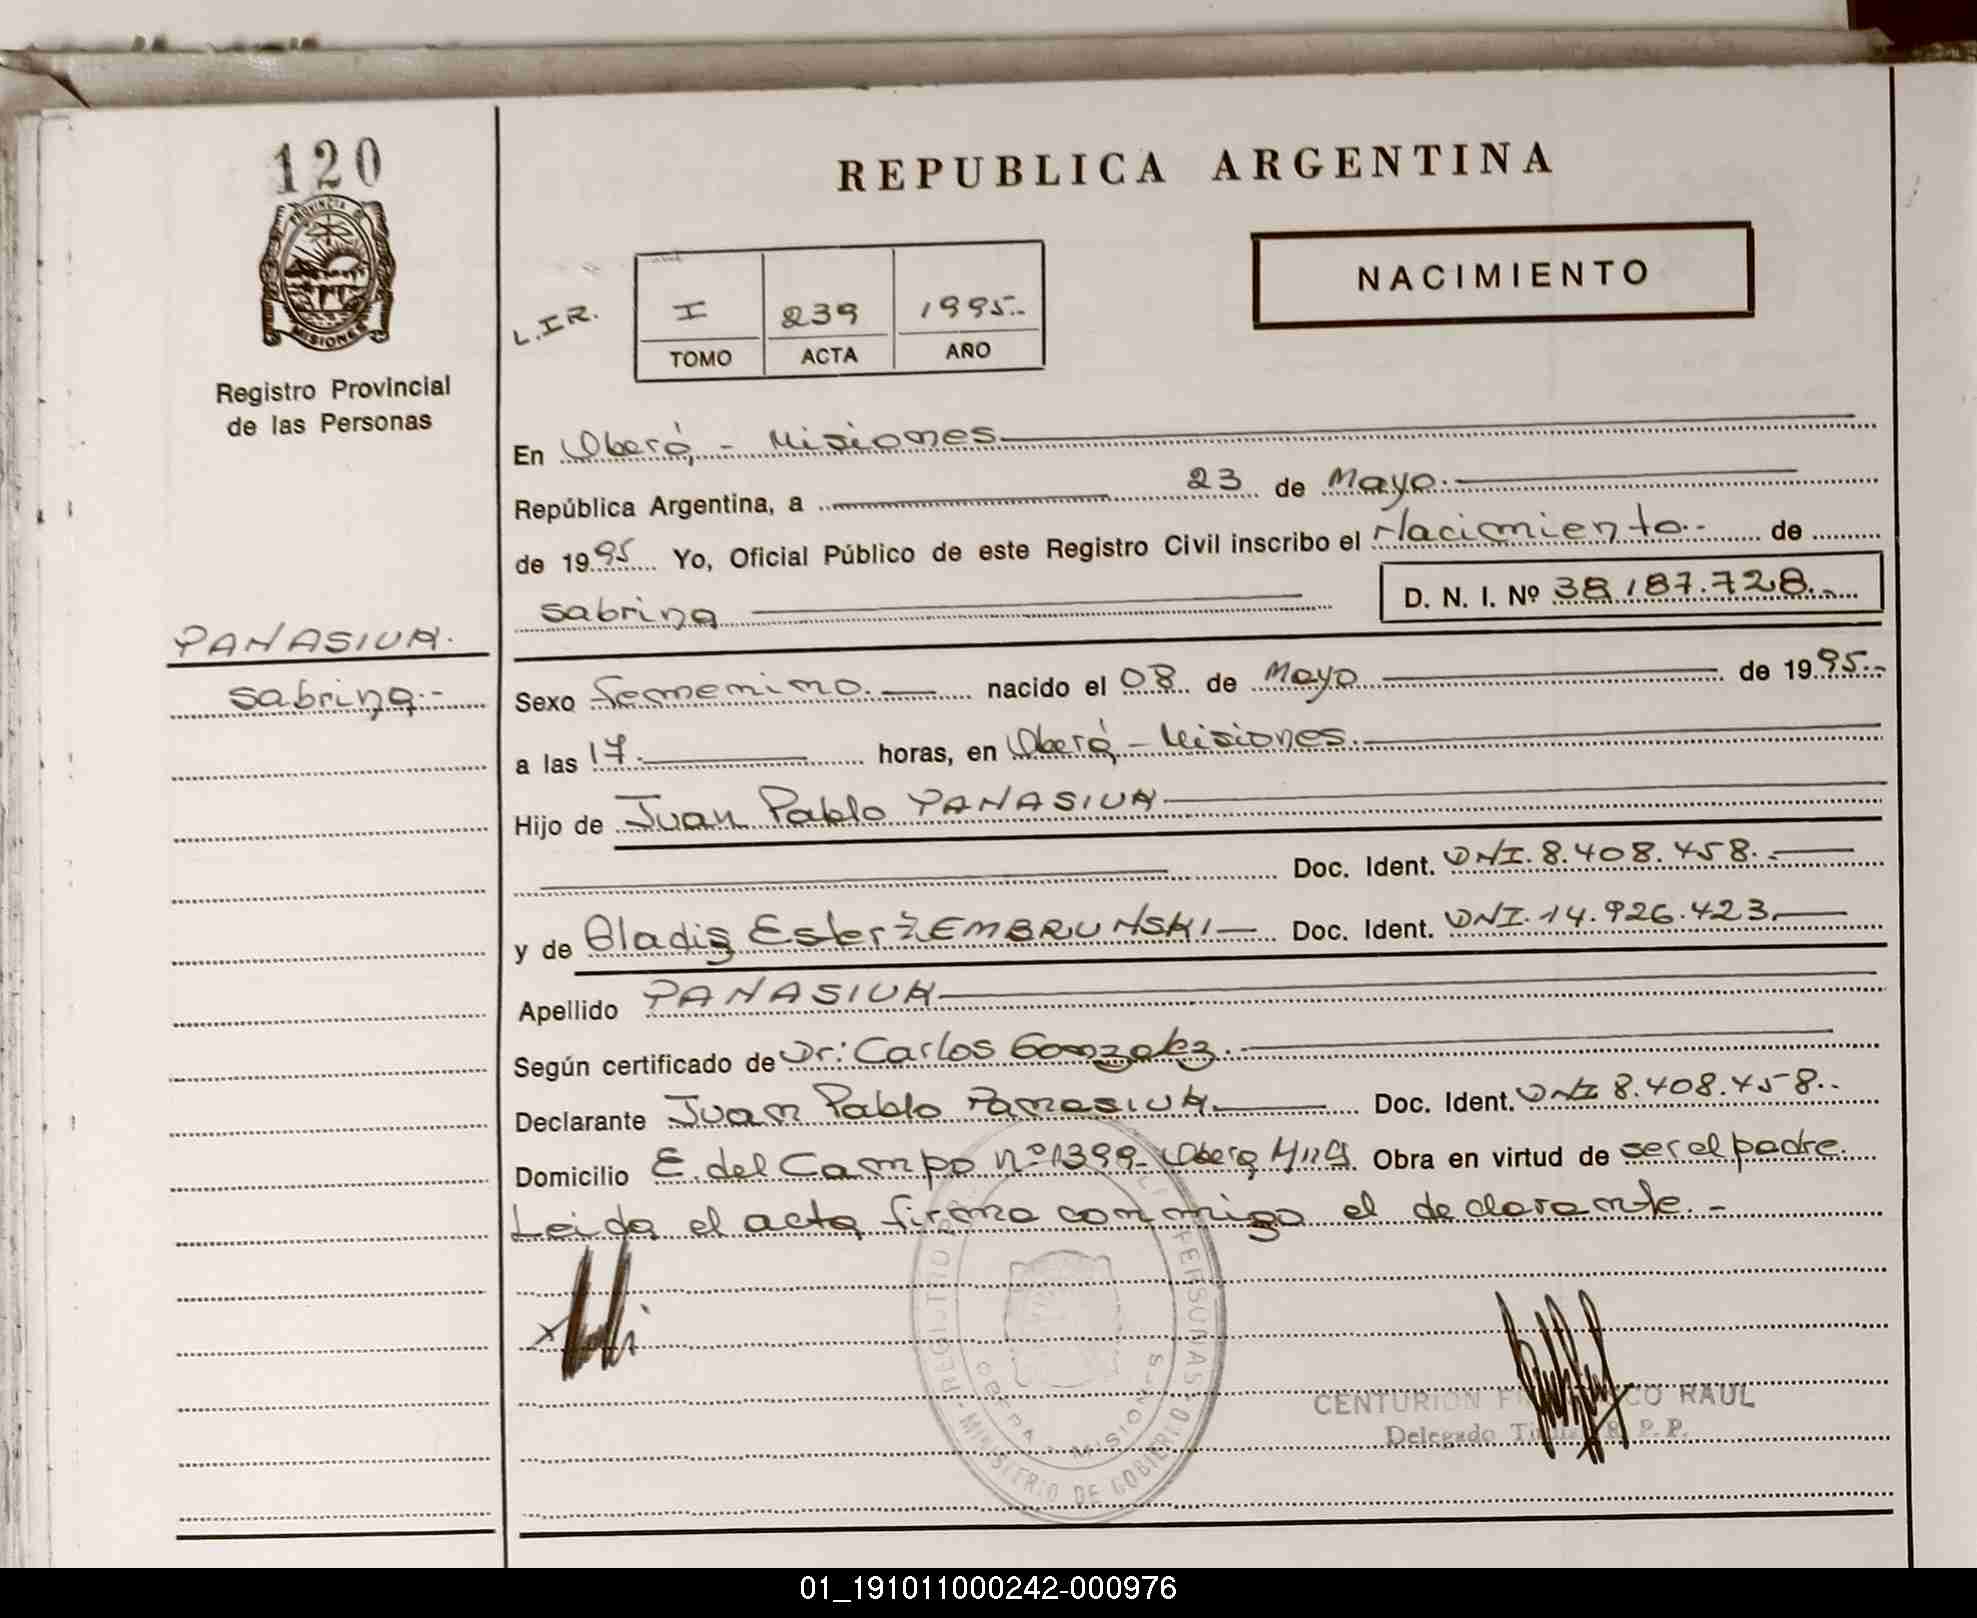 120
PROVINCIA DE
MISIONES
Registro Provincial
de las Personas
REPUBLICA ARGENTINA
NACIMIENTO
L.I.R.
I 239 1995.-
TOMO ACTA AÑO
En Oberá, - Misiones
República Argentina, a 23 de Mayo.
de 1995 Yo, Oficial Público de este Registro Civil inscribo el Nacimiento.- de
Sabrina D. N. I. Nº 38.187.728.-
PANASIUK.
Sabrina.-
Sexo Femenino. nacido el 08 de Mayo de 1995.-
a las 17. horas, en Oberá - Misiones.
Hijo de Juan Pablo PANASIUK
Doc. Ident. DNI. 8.408.458.-
y de Gladis Ester ZEMBRUNSKI Doc. Ident. DNI. 14.926.423.
Apellido PANASIUK
Según certificado de Dr: Carlos Gonzalez.
Declarante Juan Pablo Panasiuk Doc. Ident. DNI 8.408.458..
Domicilio E. del Campo nº 1399- Oberá Mnes. Obra en virtud de ser el padre.
Leida el acta firma conmigo el declarante.-
REGISTRO PERSONAS
OBERA - MISIONES
MINISTERIO DE GOBIERNO
CENTURION RAUL
Delegado R. P. P.
01_191011000242-000976